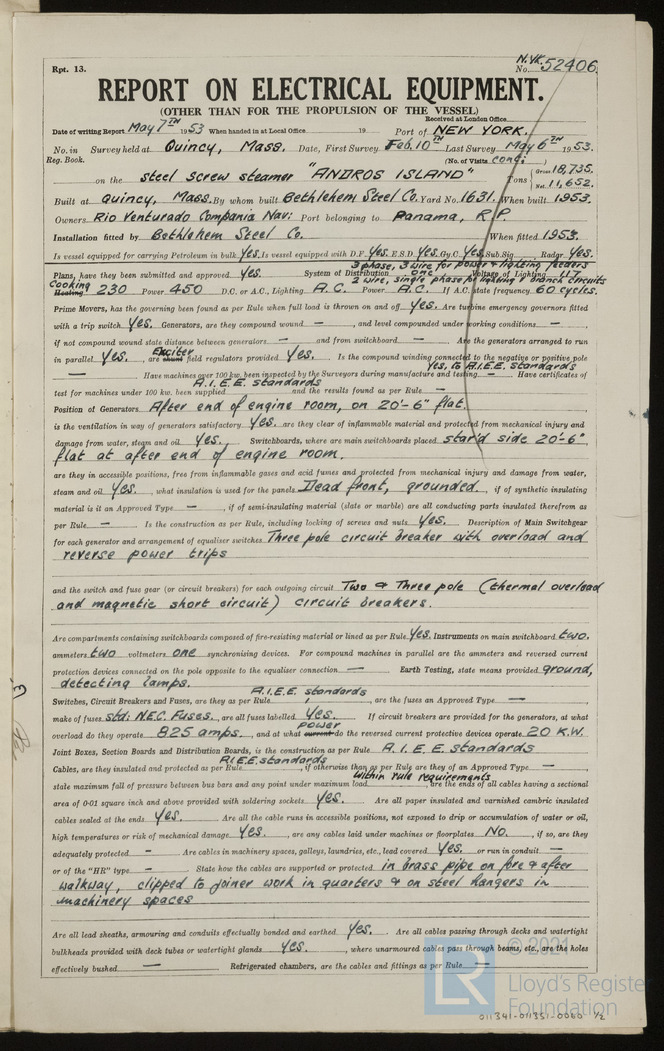 Rpt. 13.
N.YK.
No. 52406.
REPORT ON ELECTRICAL EQUIPMENT.
(OTHER THAN FOR THE PROPULSION OF THE VESSEL)
Received at London Office
Date of writing Report May 7TH 1953 When handed in at Local Office 19 Port of NEW YORK.
No. in Survey held at Quincy, Mass. Date, First Survey Feb. 10TH Last Survey May 6TH 1953.
Reg. Book. (No. of Visits cong:)
on the steel screw steamer "ANDROS ISLAND" Tons Gross 18,735.
Net 11,652.
Built at Quincy, Mass. By whom built Bethlehem Steel Co. Yard No. 1631. When built 1953.
Owners Rio Venturado Compania Nav: Port belonging to Panama, R.P.
Installation fitted by Bethlehem Steel Co. When fitted 1953.
Is vessel equipped for carrying Petroleum in bulk Yes. Is vessel equipped with D.F. Yes. E.S.D. Yes. Gy.C. Yes. Sub.Sig. Radar Yes.
3 phase, 3 wire for power & lighting feeders
Plans, have they been submitted and approved Yes. System of Distribution one Voltage of Lighting 117
2 wire, single phase for lighting & branch circuits
Cooking
Heating 230 Power 450 D.C. or A.C., Lighting A.C. Power A.C. If A.C. state frequency 60 cycles.
Prime Movers, has the governing been found as per Rule when full load is thrown on and off Yes. Are turbine emergency governors fitted
with a trip switch Yes. Generators, are they compound wound — , and level compounded under working conditions —
if not compound wound state distance between generators — and from switchboard — Are the generators arranged to run
in parallel Yes. , are shunt Exciter field regulators provided Yes. Is the compound winding connected to the negative or positive pole
Yes, to A.I.E.E. standards
— Have machines over 100 kw. been inspected by the Surveyors during manufacture and testing — Have certificates of
A.I.E.E. standards
test for machines under 100 kw. been supplied and the results found as per Rule —
Position of Generators After end of engine room, on 20'-6" flat.
is the ventilation in way of generators satisfactory Yes. are they clear of inflammable material and protected from mechanical injury and
damage from water, steam and oil Yes. Switchboards, where are main switchboards placed star'd side 20'-6"
flat at after end of engine room.
are they in accessible positions, free from inflammable gases and acid fumes and protected from mechanical injury and damage from water,
steam and oil Yes. , what insulation is used for the panels Dead front, grounded , if of synthetic insulating
material is it an Approved Type — , if of semi-insulating material (slate or marble) are all conducting parts insulated therefrom as
per Rule — Is the construction as per Rule, including locking of screws and nuts Yes. Description of Main Switchgear
for each generator and arrangement of equaliser switches Three pole circuit breaker with overload and
reverse power trips
and the switch and fuse gear (or circuit breakers) for each outgoing circuit Two & Three pole (thermal overload
and magnetic short circuit) circuit breakers.
Are compartments containing switchboards composed of fire-resisting material or lined as per Rule Yes. Instruments on main switchboard two.
ammeters two voltmeters one synchronising devices. For compound machines in parallel are the ammeters and reversed current
protection devices connected on the pole opposite to the equaliser connection — Earth Testing, state means provided ground,
detecting lamps.
A.I.E.E. standards
Switches, Circuit Breakers and Fuses, are they as per Rule , are the fuses an Approved Type —
make of fuses std: N.E.C. Fuses. , are all fuses labelled Yes. If circuit breakers are provided for the generators, at what
power
overload do they operate 825 amps. , and at what current do the reversed current protective devices operate 20 K.W.
Joint Boxes, Section Boards and Distribution Boards, is the construction as per Rule A.I.E.E. standards
A.I.E.E. standards
Cables, are they insulated and protected as per Rule , if otherwise than as per Rule are they of an Approved Type —
within rule requirements
state maximum fall of pressure between bus bars and any point under maximum load , are the ends of all cables having a sectional
area of 0·01 square inch and above provided with soldering sockets Yes. Are all paper insulated and varnished cambric insulated
cables sealed at the ends Yes. Are all the cable runs in accessible positions, not exposed to drip or accumulation of water or oil,
high temperatures or risk of mechanical damage Yes. , are any cables laid under machines or floorplates No. , if so, are they
adequately protected - Are cables in machinery spaces, galleys, laundries, etc., lead covered Yes. or run in conduit —
or of the "HR" type — State how the cables are supported or protected in brass pipe on fore & after
walkway, clipped to joiner work in quarters & on steel hangers in
machinery spaces
Are all lead sheaths, armouring and conduits effectually bonded and earthed Yes. Are all cables passing through decks and watertight
bulkheads provided with deck tubes or watertight glands Yes. , where unarmoured cables pass through beams, etc., are the holes
effectively bushed — Refrigerated chambers, are the cables and fittings as per Rule —
LR © 2021
Lloyd's Register
Foundation
011341-011351-0060 1/2